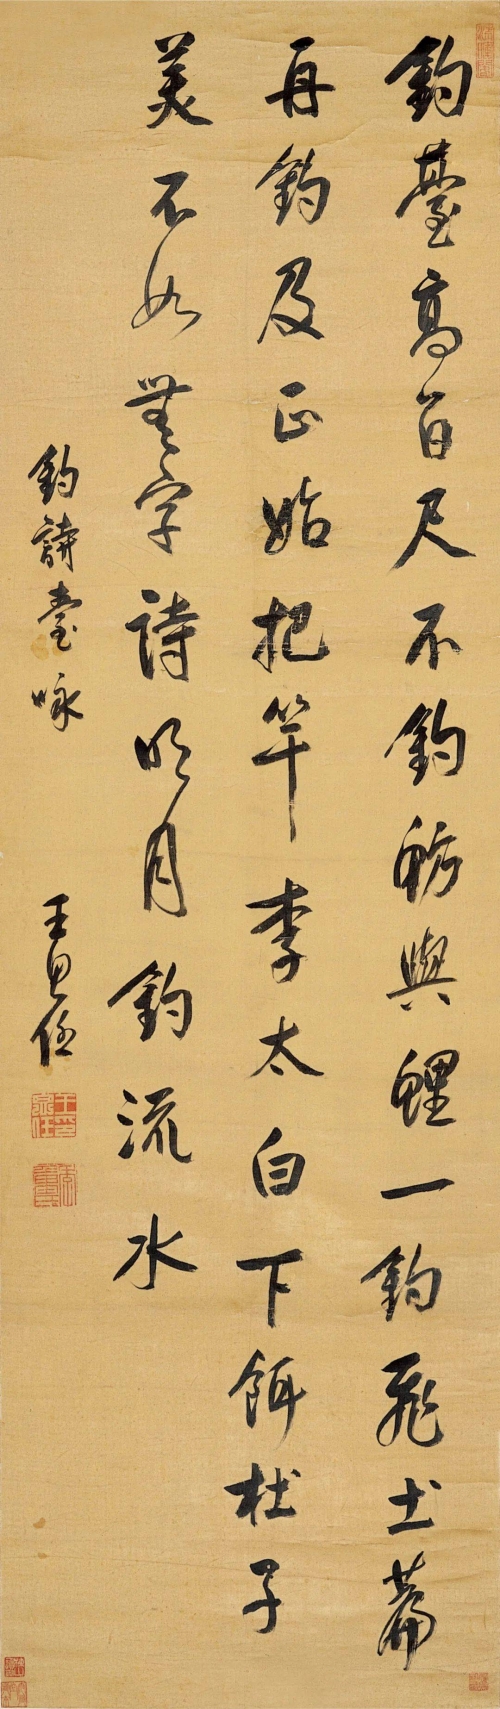 釣臺高百尺不釣魴與鯉一釣飛土篇
再釣及正始把竿李太白下餌杜子
美不如無字詩明月釣流水
釣詩臺咏
王思任
王思任印